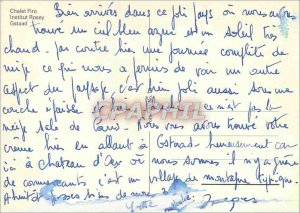 Chalet Firo
Institut Rosey
Gstaad
Bien arrivés dans ce joli pays où nous avons
trouvé un ciel bleu azur et un soleil très
chaud. par contre hier une journée complète de
neige ce qui nous a permis de voir un autre
aspect du paysage, c'est bien joli aussi sous une
couche épaisse ce n'est pas la
neige sale de Paris. Nous vous avons trouvé votre
crème hier en allant à Gstaad heureusement car
ici à Château d'Oex où nous sommes il n'y a guère
de commerçants c'est un village de montagne typique.
A bientôt grosses bises de nous 3.
Yvette Jacques